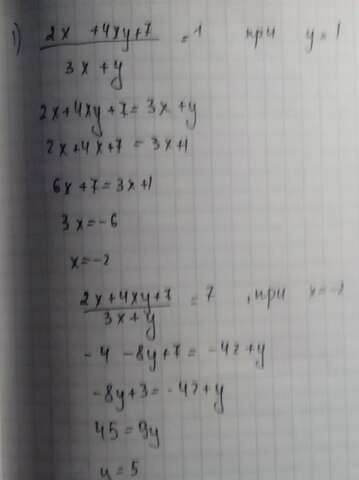 1) 2x +4xy+7 = 1 при y=1
3x+y
2x+4xy+7=3x+y
2x+4x+7=3x+1
6x+7=3x+1
3x=-6
x=-2
2x+4xy+7 = 7 , при x=-2
3x+y
-4 -8y+7=-42+y
-8y+3=-42+y
45=9y
y=5